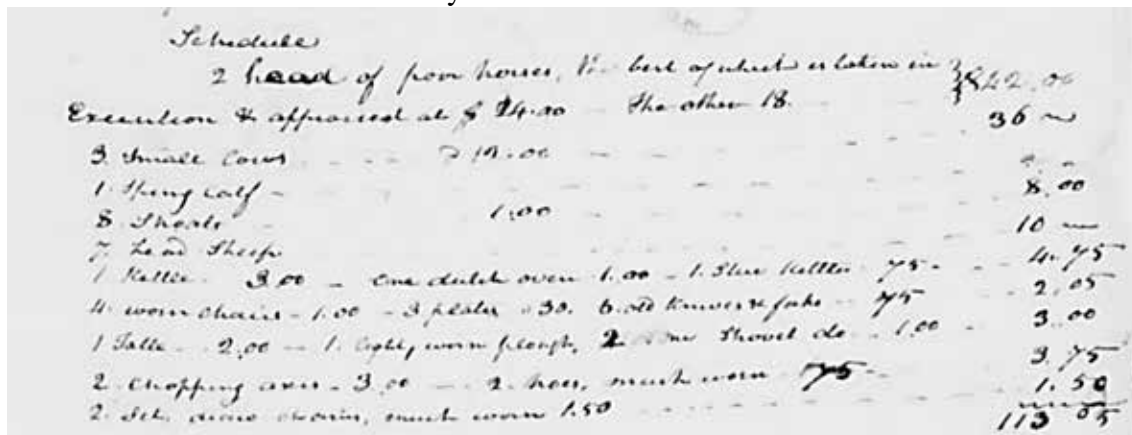 Schedule
2 head of poor horses, the best of which is taken in $42.00
Execution & appraised at $24.00 The other 18.
3. Small Cows - - @ 12.00 - - 36 -
1. Spring calf - - -
8. Shoats - 1.00 - - 8.00
7. head Sheep - - 10 -
1 Kettle - 3.00 - one dutch oven 1.00 - 1. Stew Kettle 75 - 4.75
4. worn chairs - 1.00 - 3 plates - 30. 6. old knives & forks - 75 - 2.05
1 Table - 2.00 - 1. light, worn plough, Shovel do - 1.00 - 3.00
2. Chopping axes - 3.00 - 2. hoes, much worn 75 - 3.75
2. Set. chains, much worn 1.50 - - 1.50
113 05